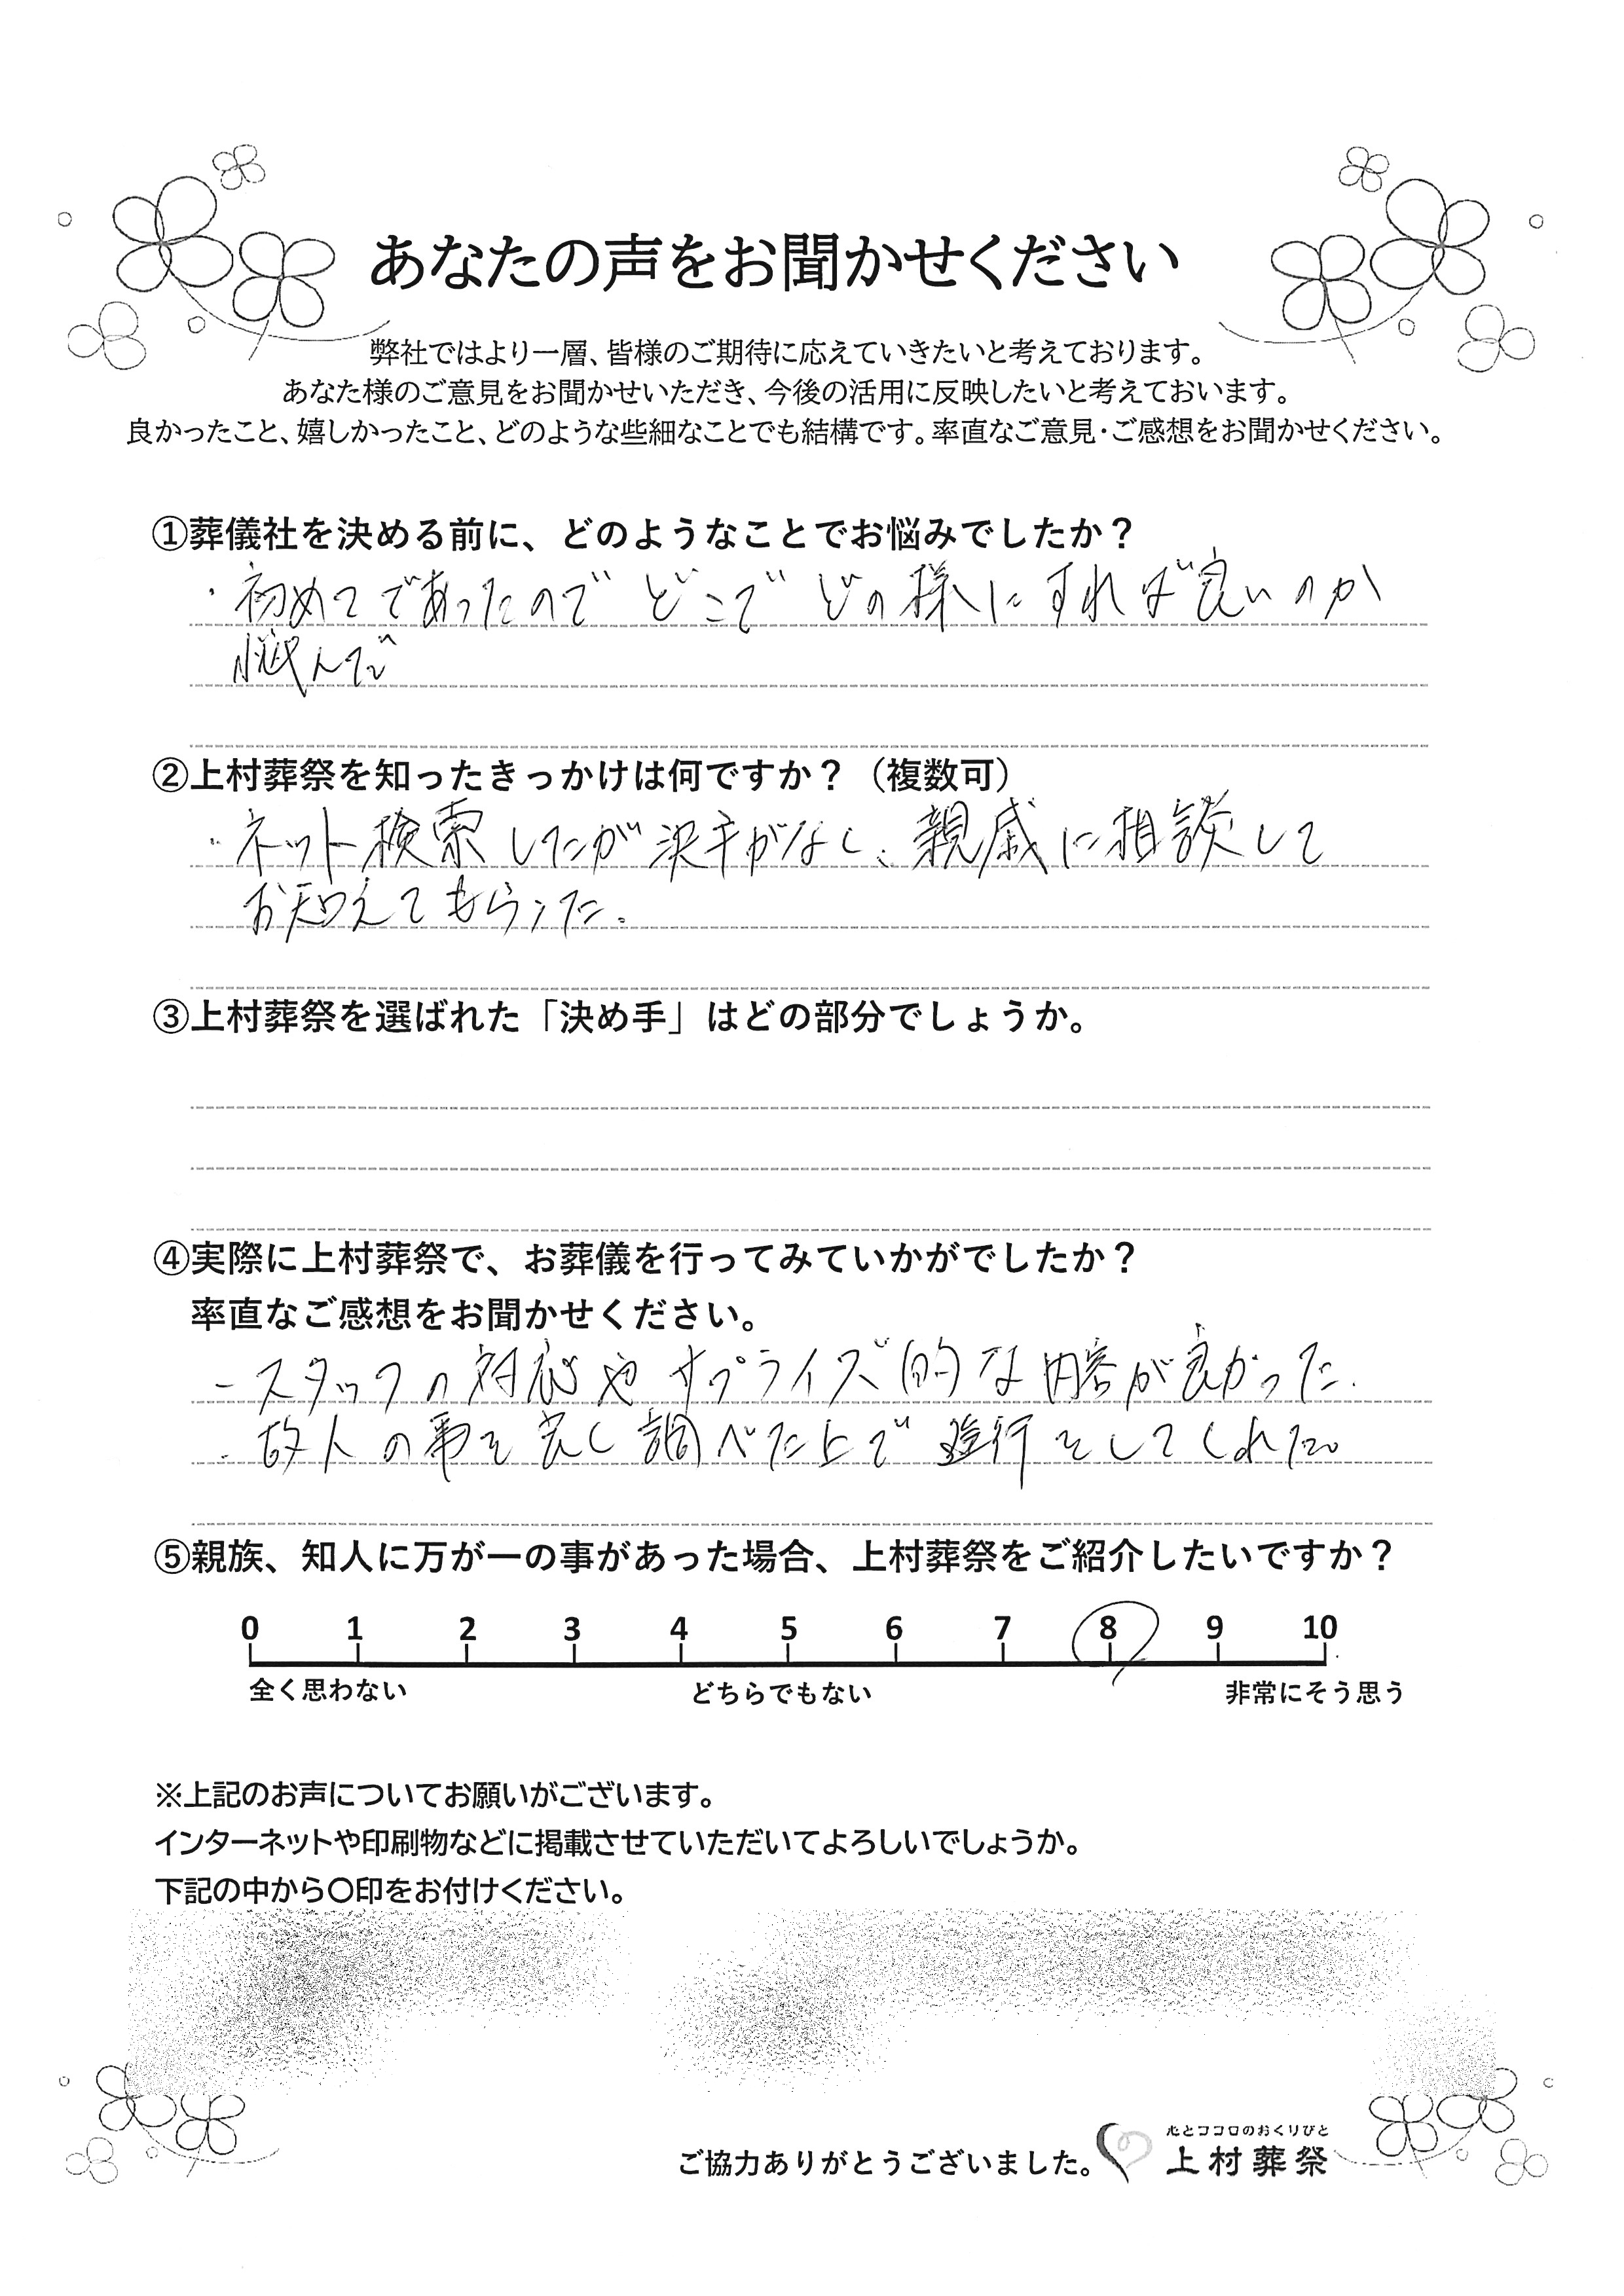 あなたの声をお聞かせください
弊社ではより一層、皆様のご期待に応えていきたいと考えております。
あなた様のご意見をお聞かせいただき、今後の活用に反映したいと考えておいます。
良かったこと、嬉しかったこと、どのような些細なことでも結構です。率直なご意見・ご感想をお聞かせください。
①葬儀社を決める前に、どのようなことでお悩みでしたか？
・初めてであったのでどこでどの様にすれば良いのか
悩んで
②上村葬祭を知ったきっかけは何ですか？（複数可）
・ネット検索したが決手がなく、親戚に相談して
お知えてもらった。
③上村葬祭を選ばれた「決め手」はどの部分でしょうか。
④実際に上村葬祭で、お葬儀を行ってみていかがでしたか？
率直なご感想をお聞かせください。
-スタッフの対応やサプライズ的な内容が良かった.
・故人の事を良く調べた上で進行をしてくれた。
⑤親族、知人に万が一の事があった場合、上村葬祭をご紹介したいですか？
0 1 2 3 4 5 6 7 8 9 10
全く思わない どちらでもない 非常にそう思う
※上記のお声についてお願いがございます。
インターネットや印刷物などに掲載させていただいてよろしいでしょうか。
下記の中から〇印をお付けください。
心とココロのおくりびと
ご協力ありがとうございました。 上村葬祭